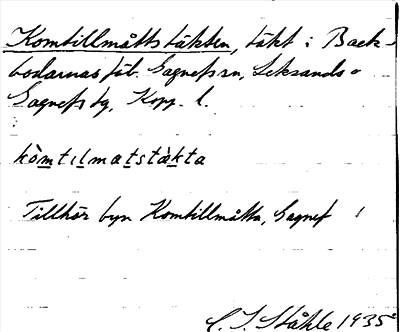 Komtillmåttstäkten, täkt i Back-
bodarnas fäb. Gagnefs sn, Leksands o
Gagnefs tg, Kopp. l.
kòmtılmatstæ̀kta
Tillhör byn Komtillmåtta, Gagnef
C. I. Ståhle 1935